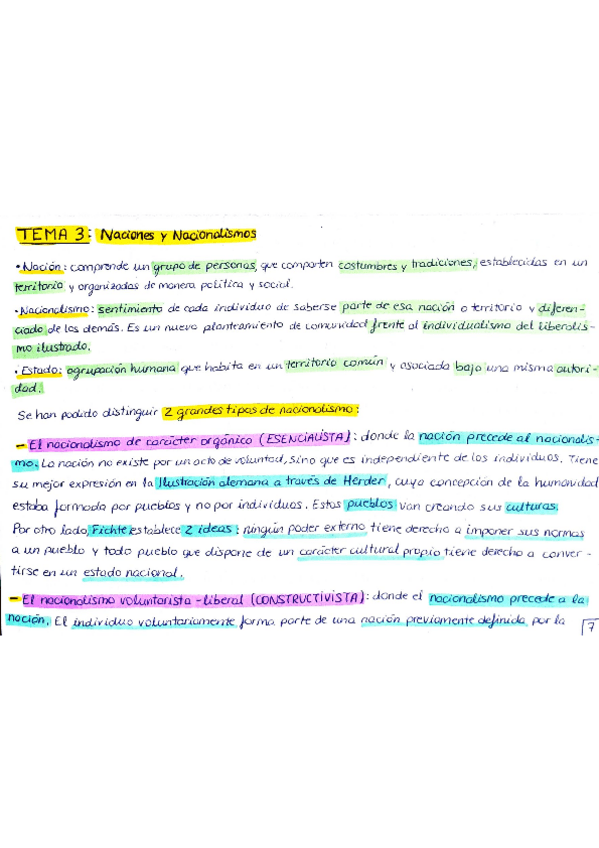 TEMA 3: Naciones y Nacionalismos
• Nación: comprende un grupo de personas, que comparten costumbres y tradiciones, establecidas en un
territorio y organizadas de manera política y social.
• Nacionalismo: sentimiento de cada individuo de saberse parte de esa nación o territorio y diferen-
ciado de los demás. Es un nuevo planteamiento de comunidad frente al individualismo del liberalis-
mo ilustrado.
• Estado: agrupación humana que habita en un territorio común y asociada bajo una misma autori-
dad.
Se han podido distinguir 2 grandes tipos de nacionalismo:
- El nacionalismo de carácter orgánico (ESENCIALISTA): donde la nación precede al nacionalis-
mo. La nación no existe por un acto de voluntad, sino que es independiente de los individuos. Tiene
su mejor expresión en la Ilustración alemana a través de Herder, cuya concepción de la humanidad
estaba formada por pueblos y no por individuos. Estos pueblos van creando sus culturas.
Por otro lado, Fichte establece 2 ideas: ningún poder externo tiene derecho a imponer sus normas
a un pueblo y todo pueblo que dispone de un carácter cultural propio tiene derecho a conver-
tirse en un estado nacional.
- El nacionalismo voluntarista-liberal (CONSTRUCTIVISTA): donde el nacionalismo precede a la
nación. El individuo voluntariamente forma parte de una nación previamente definida por la
7